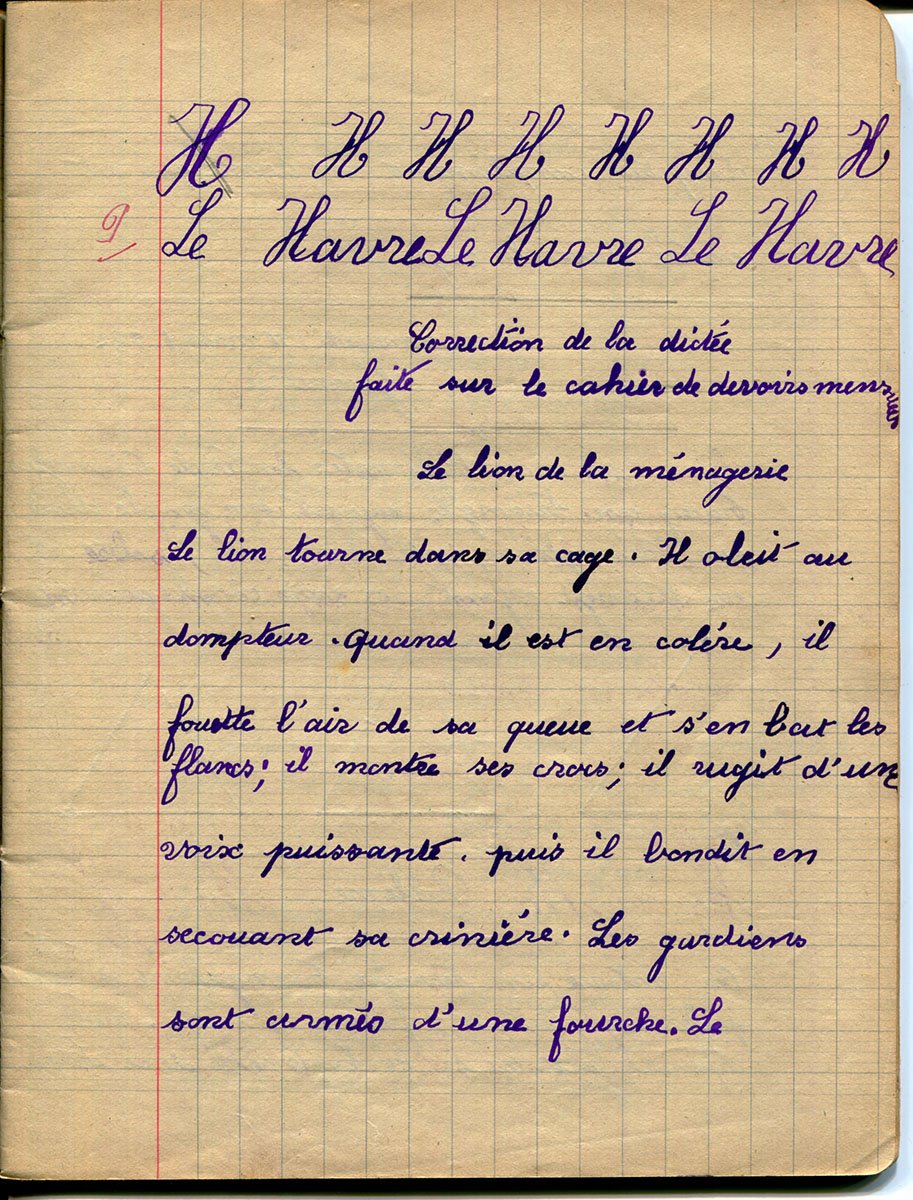 H H H H H H H H
Le Havre Le Havre Le Havre
Correction de la dictée
faite sur le cahier de devoirs mensuels
Le lion de la ménagerie
Le lion tourne dans sa cage. Il obeit au
dompteur. quand il est en colére, il
fouette l'air de sa queue et s'en bat les
flancs; il montre ses crocs; il rugit d'une
voix puissante. puis il bondit en
secouant sa criniére. Les gardiens
sont armés d'une fourche. Le